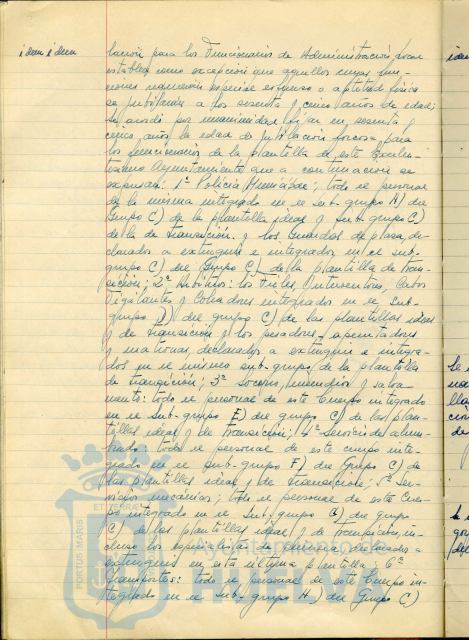 idem idem
lación para los Funcionarios de Administración local
establece como excepción que aquellos cuyas fun-
ciones requieran especial esfuerzo o aptitud física
se jubilarán a los sesenta y cinco años de edad;
Se acordó por unanimidad fijar en sesenta y
cinco años la edad de jubilación forzosa para
los funcionarios de la plantilla de este Excelen-
tísimo Ayuntamiento que a continuación se
expresan: 1º Policía Municipal; todo el personal
de la misma integrado en el sub-grupo A) del
Grupo C) de la plantilla ideal y Sub-grupo C)
de la de transición. y los Guardas de plaza, de-
clarados a extinguir e integrados en el sub-
grupo C) del Grupo C) de la plantilla de tran-
sición; 2º Arbitrios: los Fieles Interventores, Cabos
Vigilantes y Cobradores integrados en el Sub-
grupo D) del grupo C) de las plantillas ideal
y de transición y los pesadores, apuntadores
y matronas, declarados a extinguir e integra-
dos en el mismo sub-grupo de la plantilla
de transición; 3º Socorro, incendios y salva-
mento: todo el personal de este Cuerpo integrado
en el Sub-grupo E) del grupo C) de las plan-
tillas ideal y de transición; 4º Servicio de alum-
brado todo el personal de este cuerpo inte-
grado en el sub-grupo F) del Grupo C) de
las plantillas ideal y de transición; 5º Ser-
vicios mecánicos; todo el personal de este Cuer-
po integrado en el Sub-grupo G) del grupo
C) de las plantillas ideal y de transición, in-
cluso los especialistas de primera declarados a
extinguir en esta última plantilla; 6º
Transportes: todo el personal de este Cuerpo in-
tegrado en el sub-grupo H) del Grupo C)
PORTUS MARIS
ET TERRAE
Ayuntamiento
HUELVA